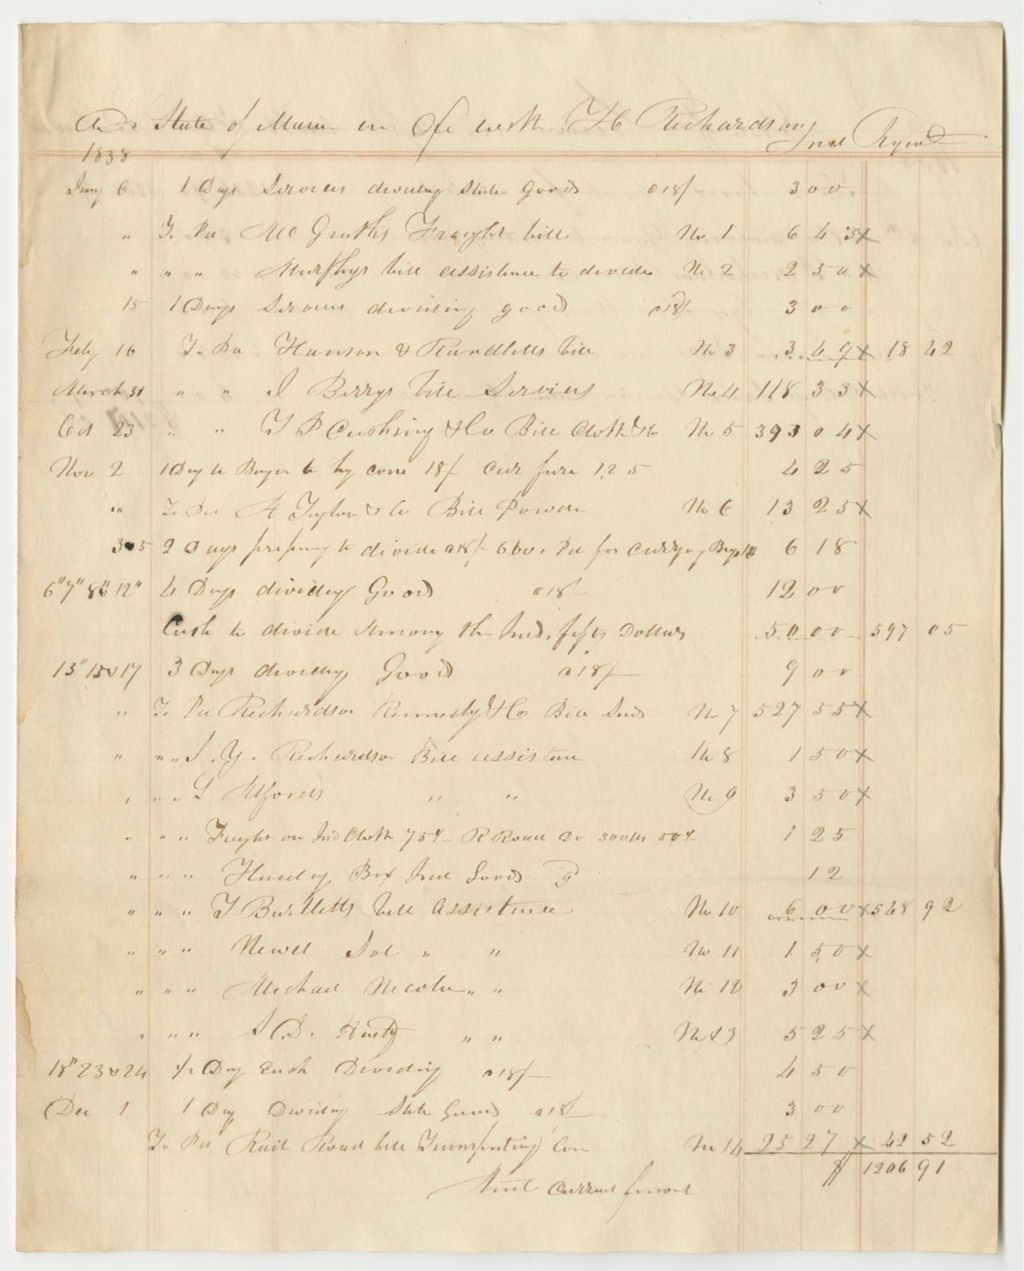 Dr State of Maine in a/c with H Richardson Ind Agent
1838
Jany 6 1 Days Services dividing State goods a 18/- 3 00
" To Pd McGraths Freight bill No 1 6 43 x
" " " Murphys bill assistance to divide No 2 2 50 x
15 1 Days Services dividing goods a 18/- 3 00
Feby 16 To Pd Hanson & Rundletts bill No 3 3 49 x 18 42
March 31 " " J Berrys bill Services No 4 118 33 x
Oct 23 " " T P Cushing & Co Bill Cloth &c No 5 393 04 x
Nov 2 1 Day to Bangor to by corn 18/- Car fare 1.25 4 25
" To Pd A Taylor & Co Bill Powder No 6 13 25 x
3 & 5 2 Days preparing to divide a 18/- 600. Pd for carrying 18 6 18
6" 7" 8 & 12" 4 Days dividing Goods a 18/- 12 00
Cash to divide Among the Ind. fifty Dollars 50 00 597 05
13" 15 & 17 3 Days dividing Goods a 18/- 9 00
" To Pd Richardson Kennedy & Co Bill Inds No 7 527 55 x
" " " J. Y. Richardson Bill assistance No 8 1 50 x
" " " L Alfords " " No 9 3 50 x
" " " Freight on Ind Cloth 75 R Road Do Goods 50 1 25
" " " Box Ind Goods 12
" " " T Bartletts bill Assistance No 10 6 00 x 548 92
" " " Newell Sol " " No 11 1 50 x
" " " Michael Nicola " " No 12 3 00 x
" " " S D. Hasty " " No 13 5 25 x
18" 23 & 24 1/2 Day Each Dividing a 18/- 4 50
Dec 1 1 Day Dividing State Goods a 18/- 3 00
To Pd Rail Road bill Transporting Corn No 14 25 27 x 42 52
Amt Carried forward $ 1206 91